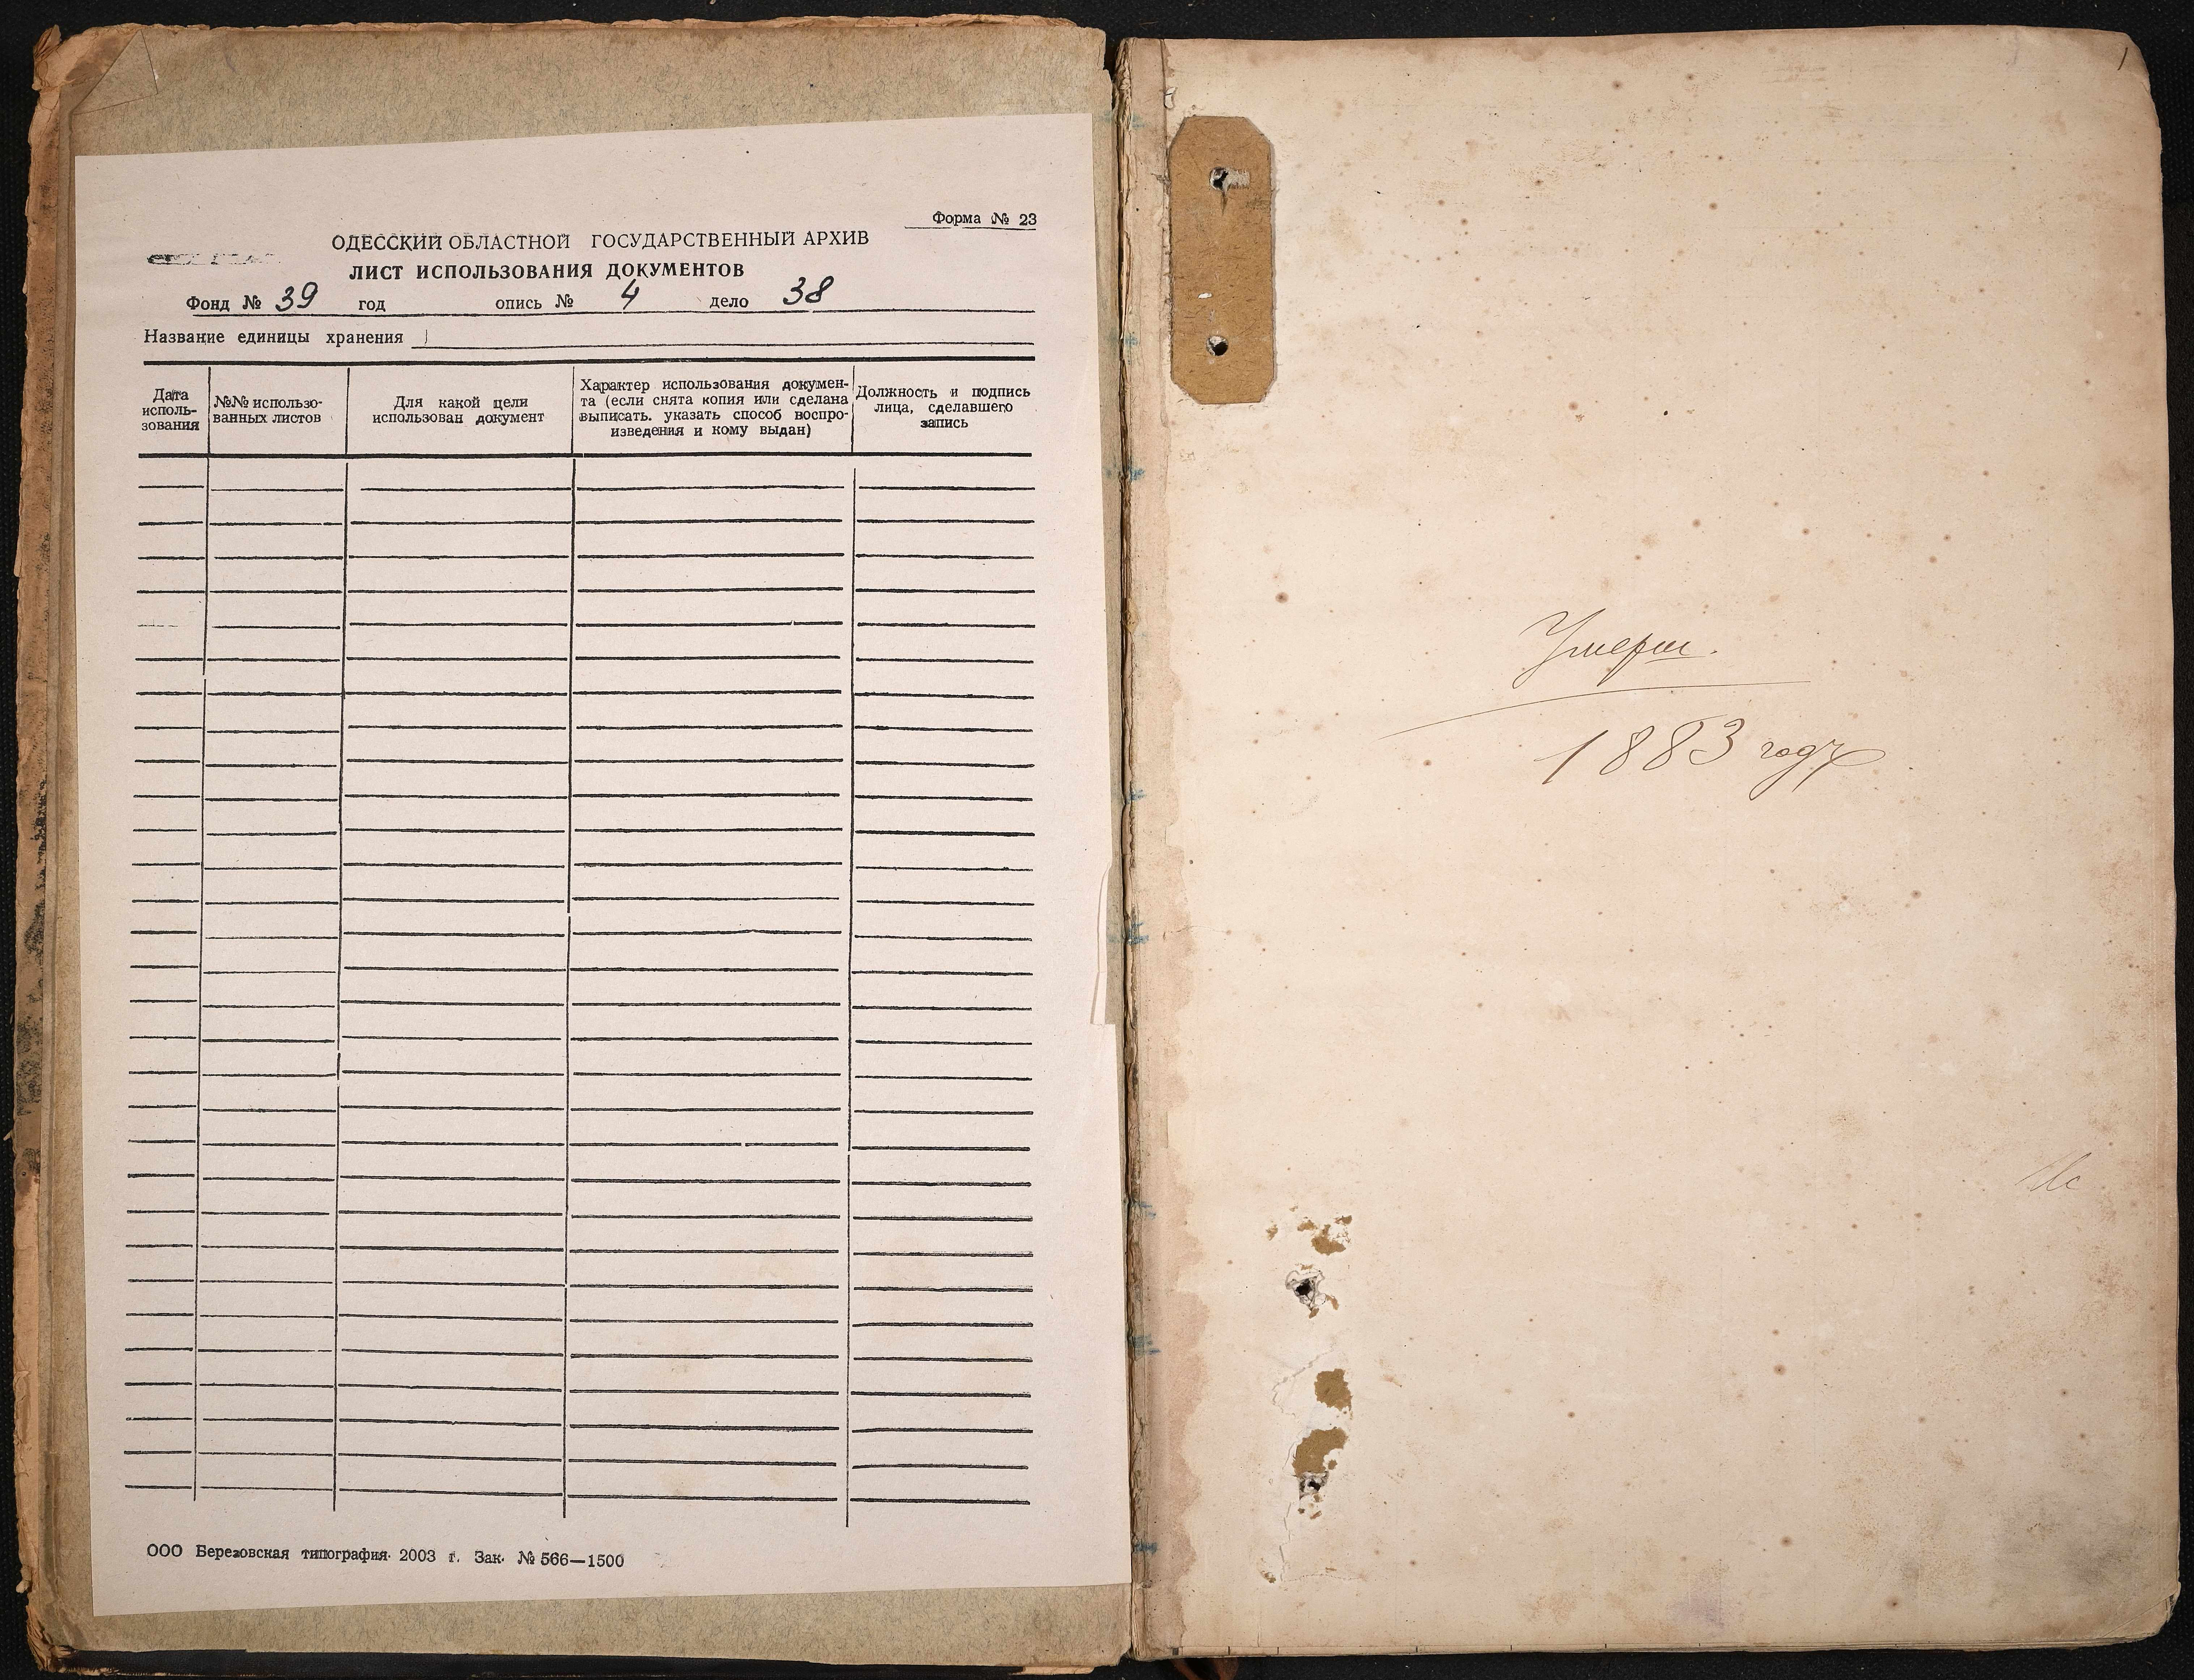 Форма № 23
ОДЕССКИЙ ОБЛАСТНОЙ ГОСУДАРСТВЕННЫЙ АРХИВ
ЛИСТ ИСПОЛЬЗОВАНИЯ ДОКУМЕНТОВ
Фонд № 39 год опись № 4 дело 38
Название единицы хранения
Дата
исполь-
зования
№№ использо-
ванных листов
Для какой цели
использован документ
Характер использования докумен-
та (если снята копия или сделана
выписать. указать способ воспро-
изведения и кому выдан)
Должность и подпись
лица, сделавшего
запись
ООО Березовская типография 2003 г. Зак. № 566—1500
1
Умерш.
1883 годъ